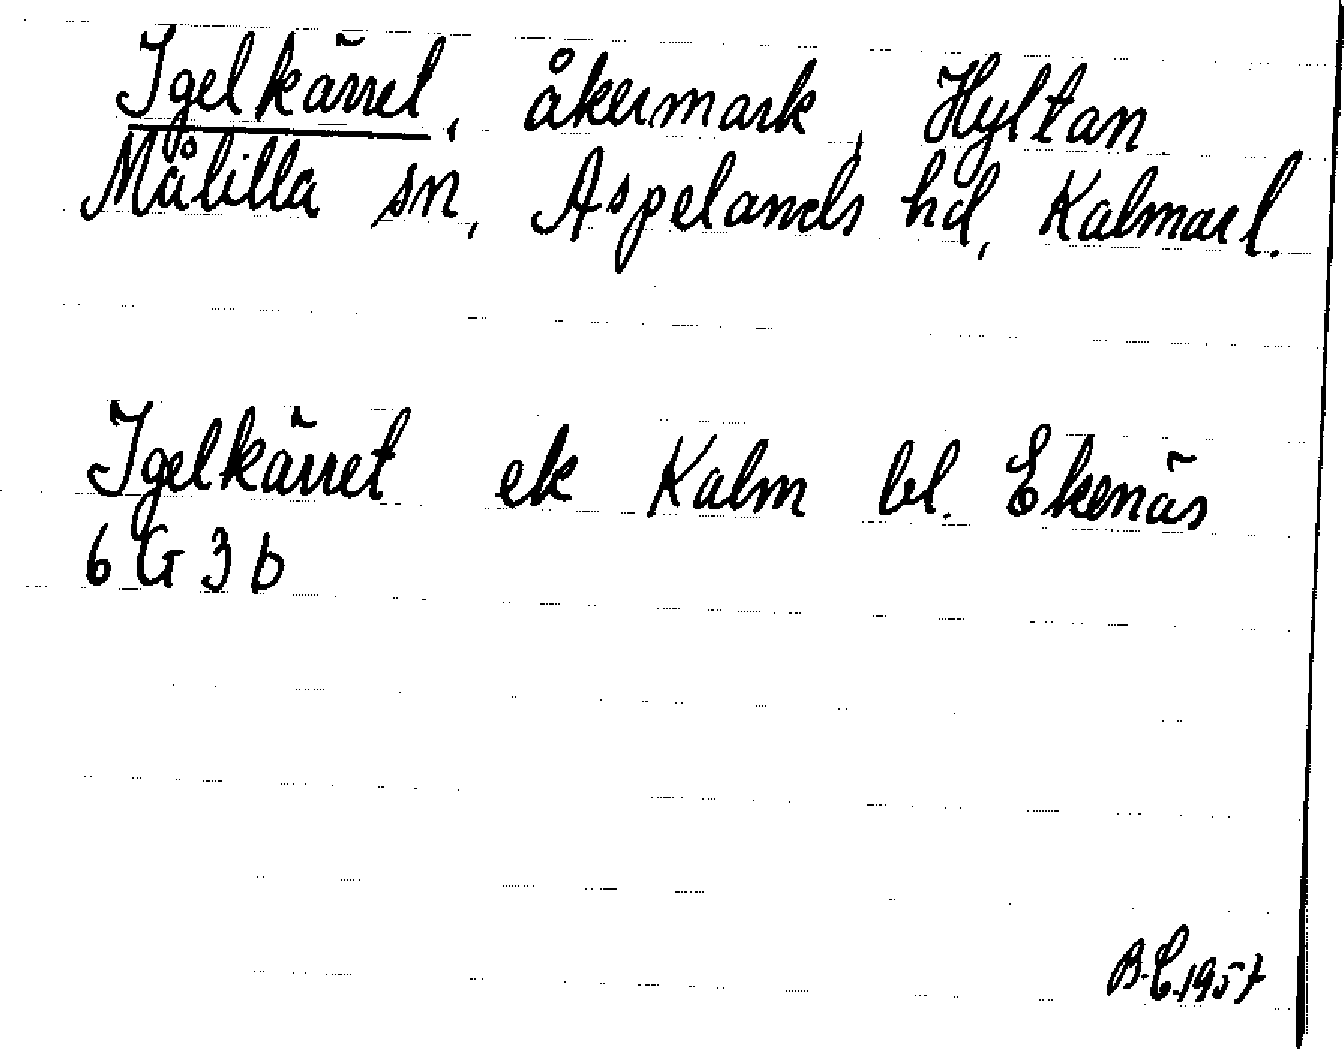 Igelkärret, åkermark, Hyltan
Målilla sn, Aspelands hd, Kalmar l.
Igelkärret ek Kalm bl. Ekenäs
6 G 3 b
B.C. 1957